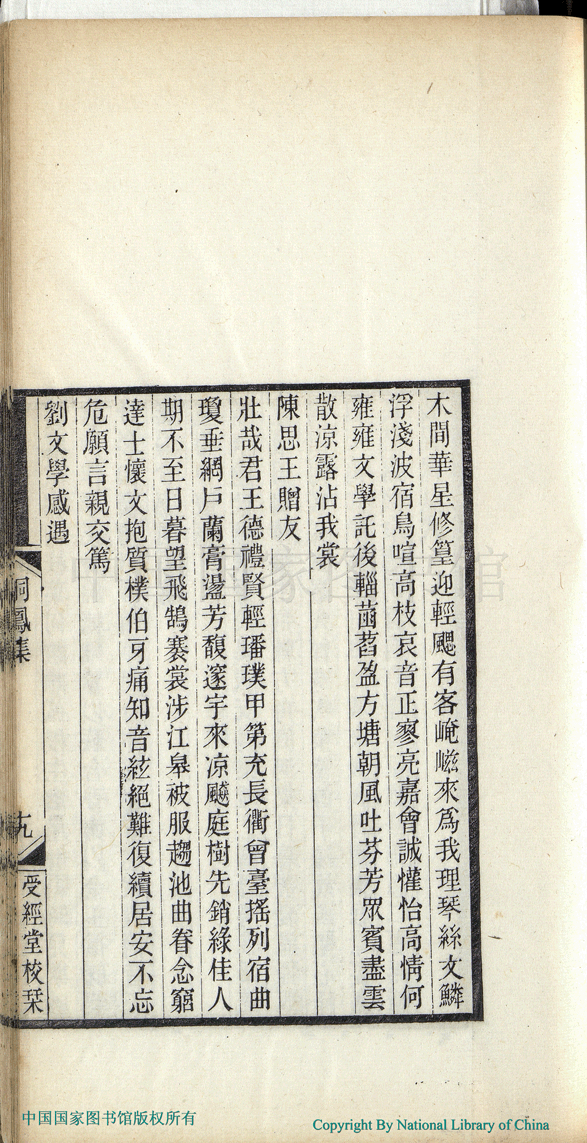 木間華星修篁迎輕颸有客崦嵫來爲我理琴絲文鱗
浮淺波宿鳥喧高枝哀音正寥亮嘉會誠懽怡高情何
雍雍文學託後輜菡萏盈方塘朝風吐芬芳眾賓盡雲
散涼露沾我裳
陳思王贈友
壯哉君王德禮賢輕璠璞甲第充長衢曾臺搖列宿曲
瓊垂網戸蘭膏盪芳馥邃宇來凉飈庭樹先銷綠佳人
期不至日暮望飛鵠褰裳涉江皋被服趨池曲眷念窮
達士懷文抱質樸伯牙痛知音絃絕難復續居安不忘
危願言親交篤
劉文學感遇
桐鳳集
九
受經堂校栞
中国国家图书馆
中国国家图书馆版权所有
Copyright By National Library of China